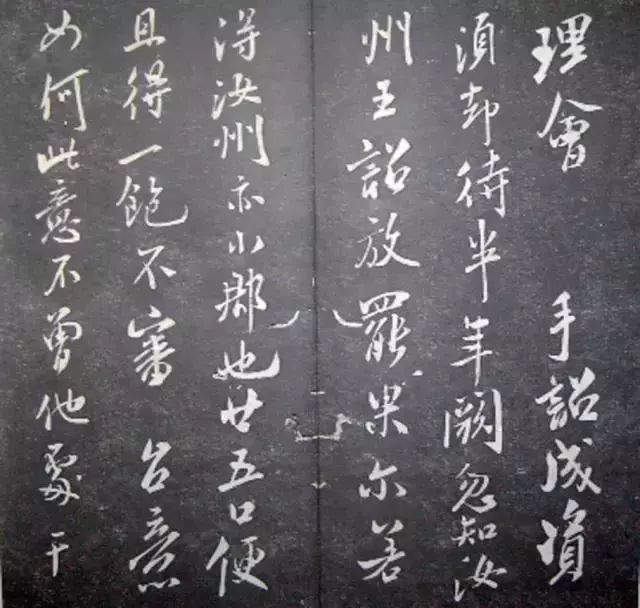 理會 手詔成資
湏却待半年闕忽知汝
州王詔放罷果尓若
淂汝州亦小郡也廿五口便
且得一飽不審 台意
如何此意不曾他處干